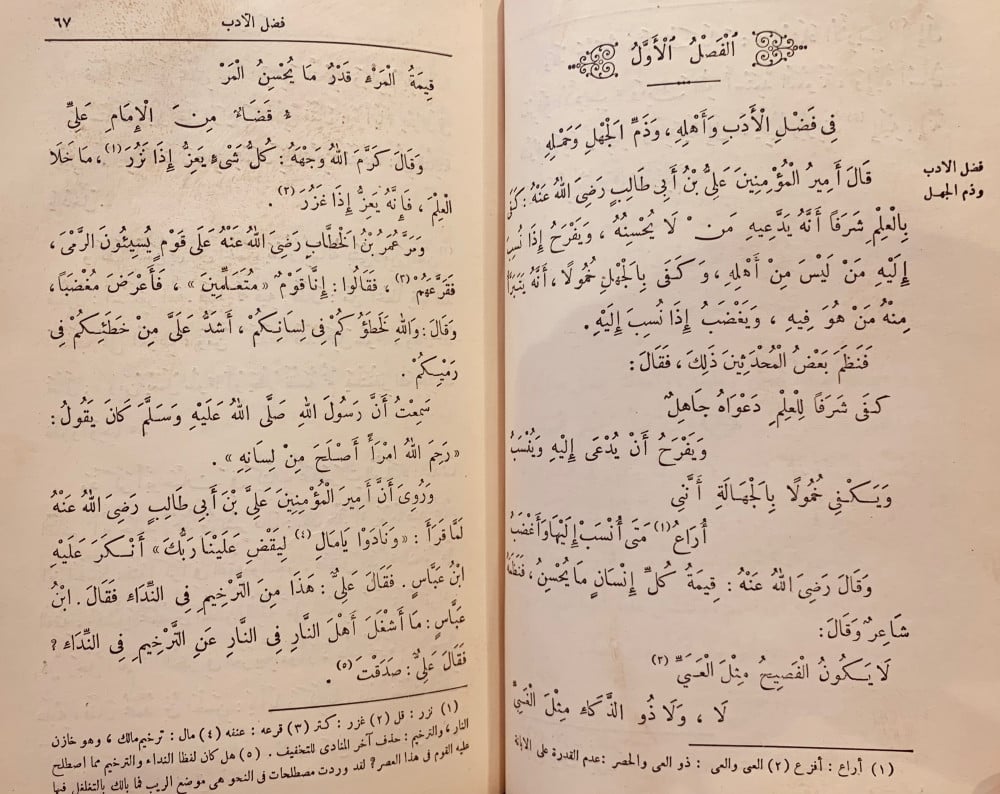 الْفَصْلُ الْأَوَّلُ
فِي فَضْلِ الْأَدَبِ وَأَهْلِهِ ، وَذَمِّ الْجَهْلِ وَحَمْلِهِ
فضل الادب
وذم الجهل
قَالَ أَمِيرُ الْمُؤْمِنِينَ عَلِيُّ بْنُ أَبِي طَالِبٍ رَضِيَ اللهُ عَنْهُ : كَفَى
بِالْعِلْمِ شَرَفًا أَنَّهُ يَدَّعِيهِ مَن لَا يُحْسِنُهُ ، وَيَفْرَحُ إِذَا نُسِبَ
إِلَيْهِ مَنْ لَيْسَ مِنْ أَهْلِهِ ، وَكَفَى بِالْجَهْلِ خُمُولًا ، أَنَّهُ يَتَبَرَّأُ
مِنْهُ مَنْ هُوَ فِيهِ ، وَيَغْضَبُ إِذَا نُسِبَ إِلَيْهِ .
فَنَظَمَ بَعْضُ الْمُحْدَثِينَ ذَلِكَ ، فَقَالَ :
كَفَى شَرَفًا لِلْعِلْمِ دَعْوَاهُ جَاهِلٌ
وَيَفْرَحُ أَنْ يُدْعَى إِلَيْهِ وَيُنْسَبُ
وَيَكْفِي خُمُولًا بِالْجَهَالَةِ أَنَّنِي
أُرَاعُ (١) مَتَى أُنْسَبْ إِلَيْهَا وَأَغْضَبُ
وَقَالَ رَضِيَ اللهُ عَنْهُ : قِيمَةُ كُلِّ إِنْسَانٍ مَا يُحْسِنُ ، فَنَظَمَهُ
شَاعِرٌ وَقَالَ :
لَا يَكُونُ الْفَصِيحُ مِثْلَ الْعَيِيِّ (٢)
لَا ، وَلَا ذُو الذَّكَاءِ مِثْلَ الْغَبِيِّ
(١) أراع : أفزع (٢) العي والعى : ذو العى والحصر : عدم القدرة على الابانة
فضل الادب ٦٧
قِيمَةُ الْمَرْءِ قَدْرُ مَا يُحْسِنُ الْمَرْ
ءُ قَضَاءٌ مِنَ الْإِمَامِ عَلِيِّ
وَقَالَ كَرَّمَ اللهُ وَجْهَهُ : كُلُّ شَيْءٍ يَعِزُّ إِذَا نَزُرَ (١) ، مَا خَلَا
الْعِلْمَ ، فَإِنَّهُ يَعِزُّ إِذَا غَزُرَ (٢) .
وَمَرَّ عُمَرُ بْنُ الْخَطَّابِ رَضِيَ اللهُ عَنْهُ عَلَى قَوْمٍ يُسِيئُونَ الرَّمْيَ ،
فَقَرَّعَهُمْ (٣) ، فَقَالُوا : إِنَّا قَوْمٌ « مُتَعَلِّمِينَ » ، فَأَعْرَضَ مُغْضَبًا ،
وَقَالَ : وَاللهِ لَخَطَؤُكُمْ فِي لِسَانِكُمْ ، أَشَدُّ عَلَيَّ مِنْ خَطَئِكُمْ فِي
رَمْيِكُمْ .
سَمِعْتُ أَنَّ رَسُولَ اللهِ صَلَّى اللهُ عَلَيْهِ وَسَلَّمَ كَانَ يَقُولُ :
« رَحِمَ اللهُ امْرَأً أَصْلَحَ مِنْ لِسَانِهِ » .
وَرُوِيَ أَنَّ أَمِيرَ الْمُؤْمِنِينَ عَلِيَّ بْنَ أَبِي طَالِبٍ رَضِيَ اللهُ عَنْهُ
لَمَّا قَرَأَ : « وَنَادَوْا يَامَالِ (٤) لِيَقْضِ عَلَيْنَا رَبُّكَ » أَنْكَرَ عَلَيْهِ
ابْنُ عَبَّاسٍ . فَقَالَ عَلِيٌّ : هَذَا مِنَ التَّرْخِيمِ فِي النِّدَاءِ فَقَالَ . ابْنُ
عَبَّاسٍ : مَا أَشْغَلَ أَهْلَ النَّارِ فِي النَّارِ عَنِ التَّرْخِيمِ فِي النِّدَاءِ ؟
فَقَالَ عَلِيٌّ : صَدَقْتَ (٥) .
(١) نزر : قل (٢) غزر : كثر (٣) قرعه : عنفه (٤) مال : ترخيم مالك ، وهو خازن
النار ، والترخيم : حذف آخر المنادى للتخفيف . (٥) هل كان لفظا النداء والترخيم مما اصطلح
عليه القوم فى هذا العصر ؟ لقد وردت مصطلحات فى النحو هى موضع الريب فما بالك بالتغلغل فيها